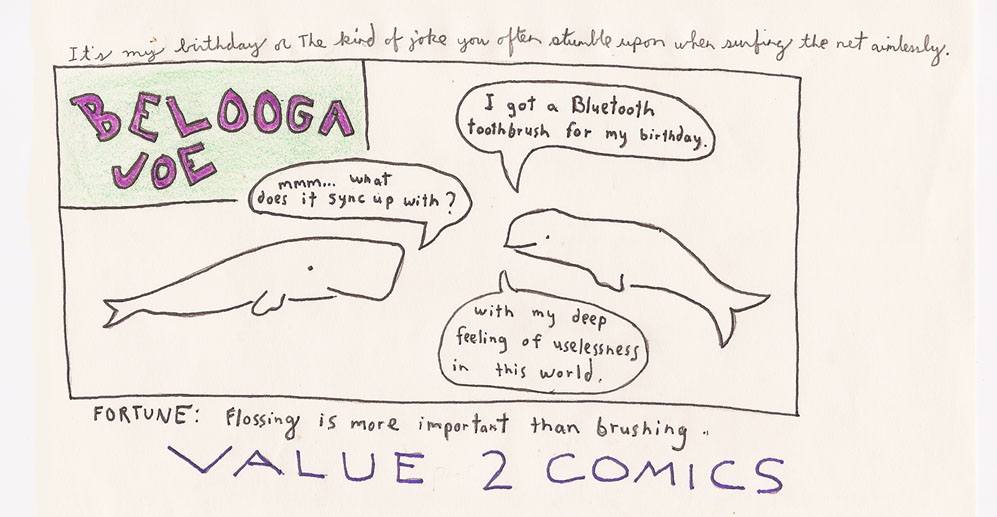 It's my birthday or The kind of joke you often stumble upon when surfing the net aimlessly.
BELOOGA
JOE
I got a Bluetooth
toothbrush for my birthday.
mmm... what
does it sync up with?
with my deep
feeling of uselessness
in this world.
FORTUNE: Flossing is more important than brushing..
VALUE 2 COMICS